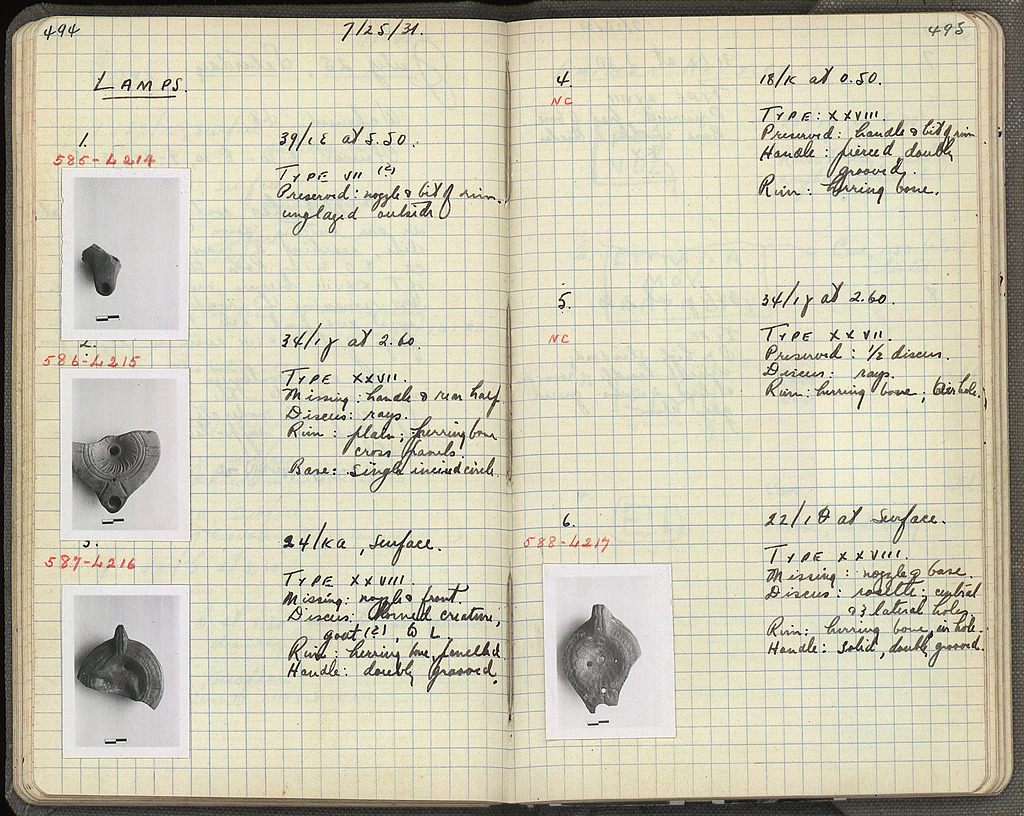 494
7/25/31.
LAMPS.
1.
39/ΙΕ at 5.50.
585-L4214
TYPE VII (?)
Preserved: nozzle & bit of rim.
unglazed outside
2.
34/ at 2.60.
586-L4215
TYPE XXVII.
Missing: handle & rear half.
Discus: rays.
Rim: plain; herring bone
cross panels.
Base: single incised circle.
3.
24/ΚΑ, Surface.
587-L4216
TYPE XXVIII.
Missing: nozzle & front.
Discus: Horned creature,
goat (?), to L.
Rim: herring bone, panelled.
Handle: doubly grooved.
495
4.
18/Κ at 0.50.
NC
TYPE: XXVIII.
Preserved: handle & bit of rim
Handle: pierced, doubly
grooved.
Rim: herring bone.
5.
34/ at 2.60.
NC
TYPE XXVII.
Preserved: 1/2 discus.
Discus: rays.
Rim: herring bone; (air hole.)
6.
22/ΙΘ at Surface.
588-L4217
TYPE XXVIII.
Missing: nozzle & base.
Discus: rosette; central
& 3 lateral holes
Rim: herring bone, air hole.
Handle: solid, doubly grooved.